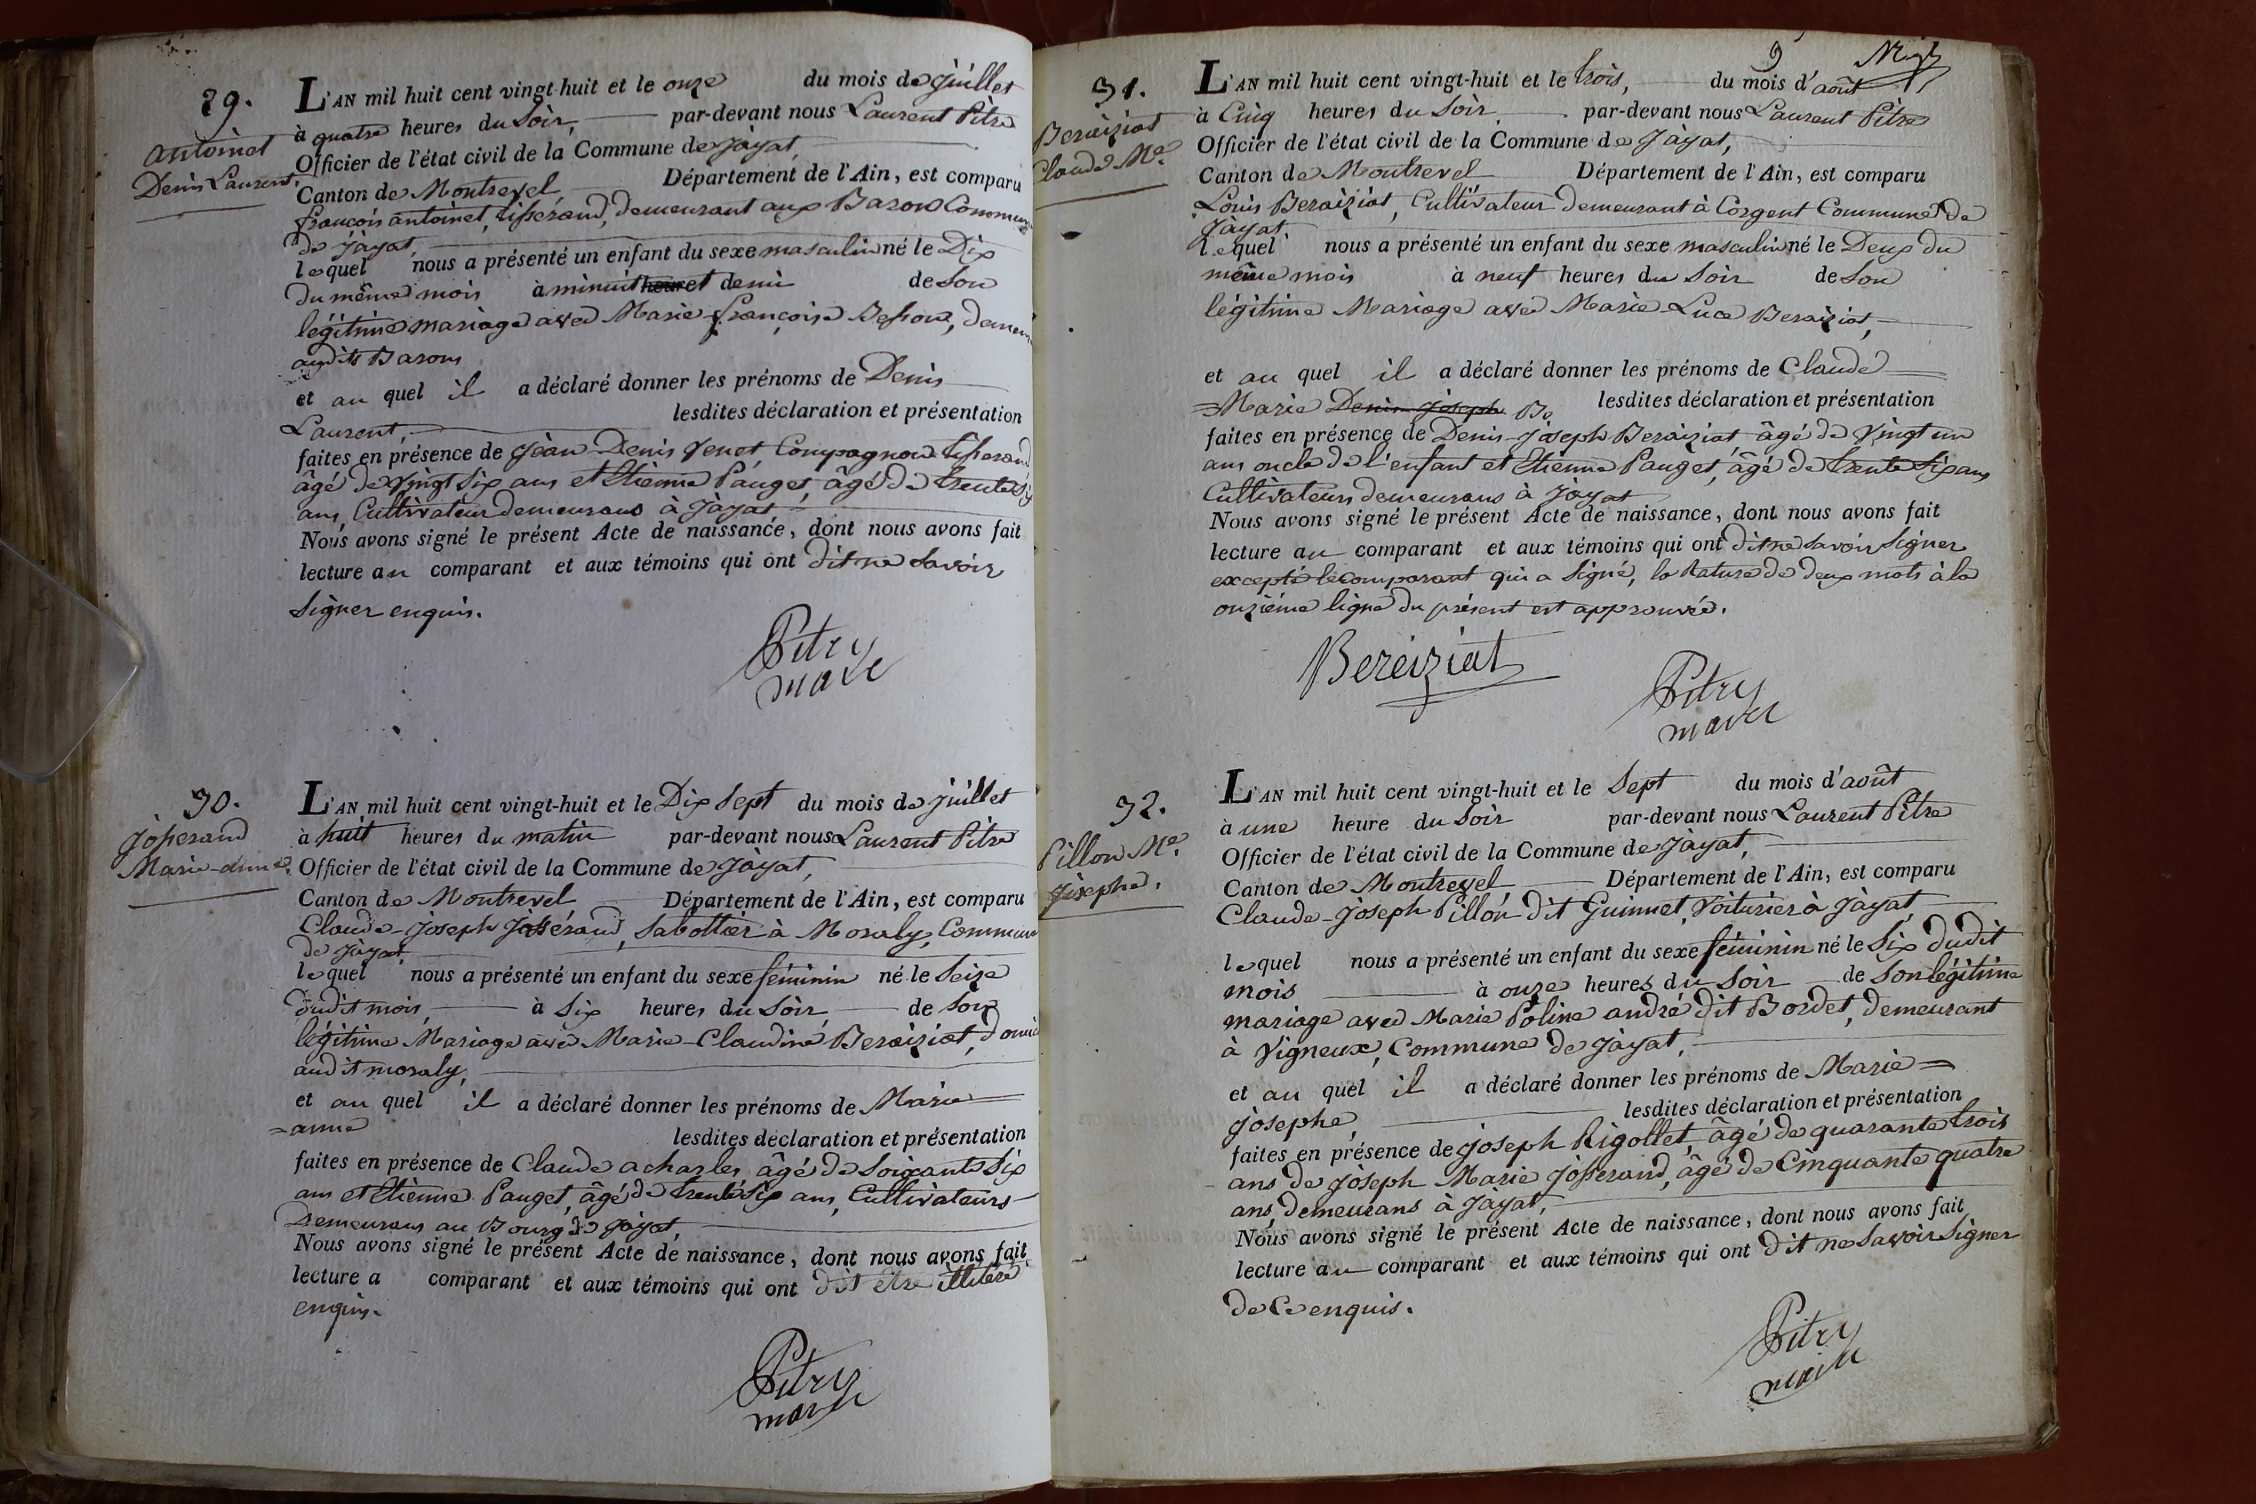 29.
Antoinet
Denis Laurent.
L'AN mil huit cent vingt-huit et le onze du mois de juillet
à quatre heures du Soir, par-devant nous Laurent Pitre
Officier de l'état civil de la Commune de Jàyat,
Canton de Montrevel Département de l'Ain, est comparu
françois antoinet, tisserand, demeurant aux Barons Commune
de Jàyat,
lequel nous a présenté un enfant du sexe masculin né le Dix
du même mois à minuit heur et demi de Son
légitime mariage avec Marie françoise Besson,
auxdits Barons
et au quel il a déclaré donner les prénoms de Denis
Laurent, lesdites déclaration et présentation
faites en présence de Jean Denis Venet Compagnon tisserand
âgé de Vingt Six ans et Etienne Pauget, âgé de trente Six
ans, Cultivateur demeurans à Jàyat
Nous avons signé le présent Acte de naissance, dont nous avons fait
lecture au comparant et aux témoins qui ont dit ne Savoir
Signer enquis.
Pitre
maire
30.
Josserand
Marie-anne.
L'AN mil huit cent vingt-huit et le Dix Sept du mois de juillet
à huit heures du matin par-devant nous Laurent Pitre
Officier de l'état civil de la Commune de Jàyat,
Canton de Montrevel Département de l'Ain, est comparu
Claude-Joseph Josserand, Sabottier à Moraly, Commune
de Jàyat,
lequel nous a présenté un enfant du sexe féminin né le Seize
dudit mois, à Six heures du Soir de Son
légitime Mariage avec Marie-Claudine Beraiziat,
audit moraly,
et au quel il a déclaré donner les prénoms de Marie=
=anne lesdites déclaration et présentation
faites en présence de Claude acharles, âgé de Soixante Six
ans et Etienne Pauget, âgé de trente Six ans, Cultivateurs
Demeurans au Bourg de Jàyat,
Nous avons signé le présent Acte de naissance, dont nous avons fait
lecture a comparant et aux témoins qui ont dit être illitéré
enquis.
Pitre
maire
9
31.
Beraiziat
Claude Mie.
L'AN mil huit cent vingt-huit et le trois, du mois d'août
à Cinq heures du Soir par-devant nous Laurent Pitre
Officier de l'état civil de la Commune de Jàyat,
Canton de Montrevel Département de l'Ain, est comparu
Louis Beraiziat, Cultivateur demeurant à Corgent Commune de
Jàyat
lequel nous a présenté un enfant du sexe masculin né le Deux du
même mois à neuf heures du Soir de Son
légitime Mariage avec Marie-Luce Beraiziat,
et au quel il a déclaré donner les prénoms de Claude=
=Marie Denis Joseph Be lesdites déclaration et présentation
faites en présence de Denis-Joseph Beraiziat âgé de Vingt un
ans oncle de l'enfant et Etienne Pauget, âgé de trente Six ans
Cultivateurs demeurans à Jàyat
Nous avons signé le présent Acte de naissance, dont nous avons fait
lecture au comparant et aux témoins qui ont dit ne Savoir Signer
excepté le comparant qui a Signé, la Rature de deux mots à la
onzième ligne du présent est approuvée.
Beréiziat
Pitre
maire
32.
Pillon Mie.
Josephe.
L'AN mil huit cent vingt-huit et le Sept du mois d'août
à une heure du Soir par-devant nous Laurent Pitre
Officier de l'état civil de la Commune de Jàyat,
Canton de Montrevel Département de l'Ain, est comparu
Claude-Joseph Pillon dit Guinnet, Voiturier à Jàyat
lequel nous a présenté un enfant du sexe féminin né le Six dudit
mois à onze heures du Soir de Son légitime
mariage avec Marie Poline andré dit Bordet, demeurant
à Vigneux, Commune de Jàyat,
et au quel il a déclaré donner les prénoms de Marie=
Josephe, lesdites déclaration et présentation
faites en présence de Joseph Rigollet, âgé de quarante trois
ans de Joseph Marie Josserand, âgé de Cinquante quatre
ans, demeurans à Jàyat,
Nous avons signé le présent Acte de naissance, dont nous avons fait
lecture au comparant et aux témoins qui ont dit ne Savoir Signer
de Ce enquis.
Pitre
maire